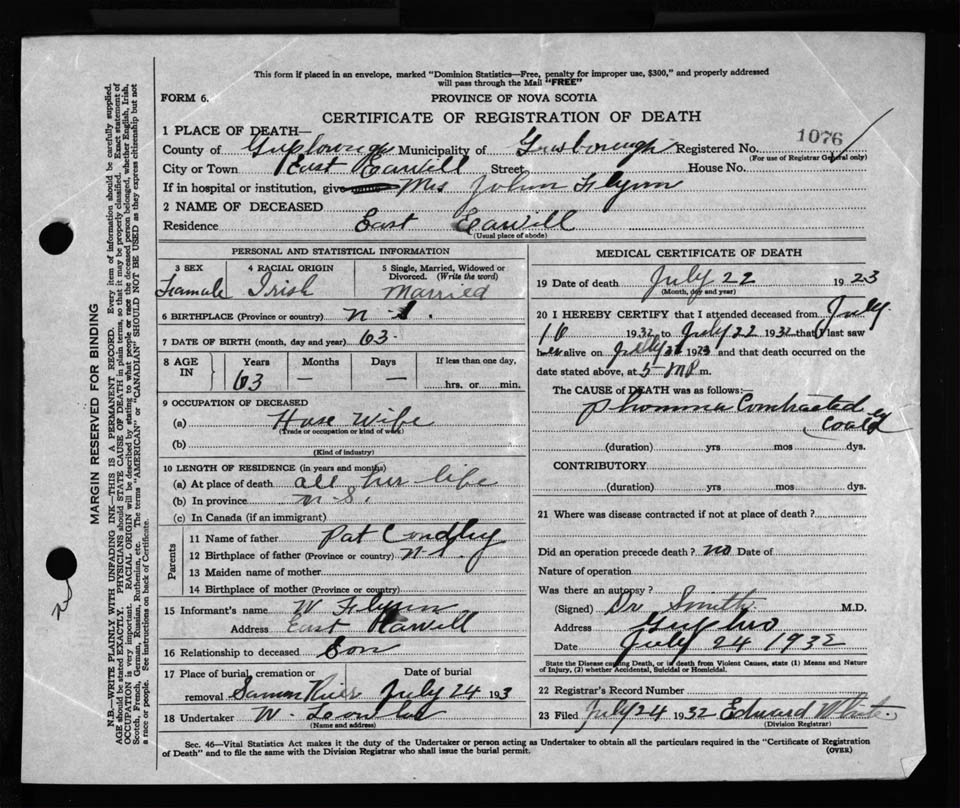 This form if placed in an envelope, marked "Dominion Statistics—Free, penalty for improper use, $300," and properly addressed
will pass through the Mail "FREE"
FORM 6.
PROVINCE OF NOVA SCOTIA
CERTIFICATE OF REGISTRATION OF DEATH
1 PLACE OF DEATH—
1076
County of Municipality of Registered No.
(For use of Registrar General only)
City or Town East Street House No.
If in hospital or institution, give Mrs John Flynn
2 NAME OF DECEASED
Residence East
(Usual place of abode)
PERSONAL AND STATISTICAL INFORMATION
3 SEX
4 RACIAL ORIGIN
5 Single, Married, Widowed or
Divorced. (Write the word)
Famale Irish Married
6 BIRTHPLACE (Province or country) N S.
7 DATE OF BIRTH (month, day and year) 63.
8 AGE
IN
Years Months Days If less than one day,
63 — — hrs. or min.
9 OCCUPATION OF DECEASED
(a) House Wife
(Trade or occupation or kind of work)
(b)
(Kind of industry)
10 LENGTH OF RESIDENCE (in years and months)
(a) At place of death all her life
(b) In province N S.
(c) In Canada (if an immigrant)
Parents
11 Name of father Pat
12 Birthplace of father (Province or country) N S.
13 Maiden name of mother
14 Birthplace of mother (Province or country)
15 Informant's name W Flynn
Address East
16 Relationship to deceased Son
17 Place of burial, cremation or Date of burial
removal River July 24 193
18 Undertaker W.
(Name and address)
MEDICAL CERTIFICATE OF DEATH
19 Date of death July 22 1923
(Month, day and year)
20 I HEREBY CERTIFY that I attended deceased from July
10 1932 to July 22 1932 that I last saw
her alive on July and that death occurred on the
date stated above, at 5 P m.
The CAUSE of DEATH was as follows:—
Contracted
Coald
(duration) yrs mos dys.
CONTRIBUTORY
(duration) yrs mos dys.
21 Where was disease contracted if not at place of death?
Did an operation precede death? no Date of
Nature of operation
Was there an autopsy?
(Signed) Dr Smith M.D.
Address
Date July 24 1932
State the Disease causing Death, or in death from Violent Causes, state (1) Means and Nature
of Injury, (2) whether Accidental, Suicidal or Homicidal.
22 Registrar's Record Number
23 Filed July 24 1932 Edward White.
(Division Registrar)
Sec. 46—Vital Statistics Act makes it the duty of the Undertaker or person acting as Undertaker to obtain all the particulars required in the "Certificate of Registration
of Death" and to file the same with the Division Registrar who shall issue the burial permit.
(OVER)
MARGIN RESERVED FOR BINDING
N.B.—WRITE PLAINLY WITH UNFADING INK—THIS IS A PERMANENT RECORD. Every item of information should be carefully supplied.
AGE should be stated EXACTLY. PHYSICIANS should STATE CAUSE OF DEATH in plain terms, so that it may be properly classified. Exact statement of
OCCUPATION is very important. RACIAL ORIGIN will be described by stating to what people or race the deceased person belonged, whether English, Irish,
Scotch, French, German, Russian, Ruthenian, etc. The terms "AMERICAN" or "CANADIAN" SHOULD NOT BE USED as they express citizenship but not
a race or people. See instructions on back of Certificate.